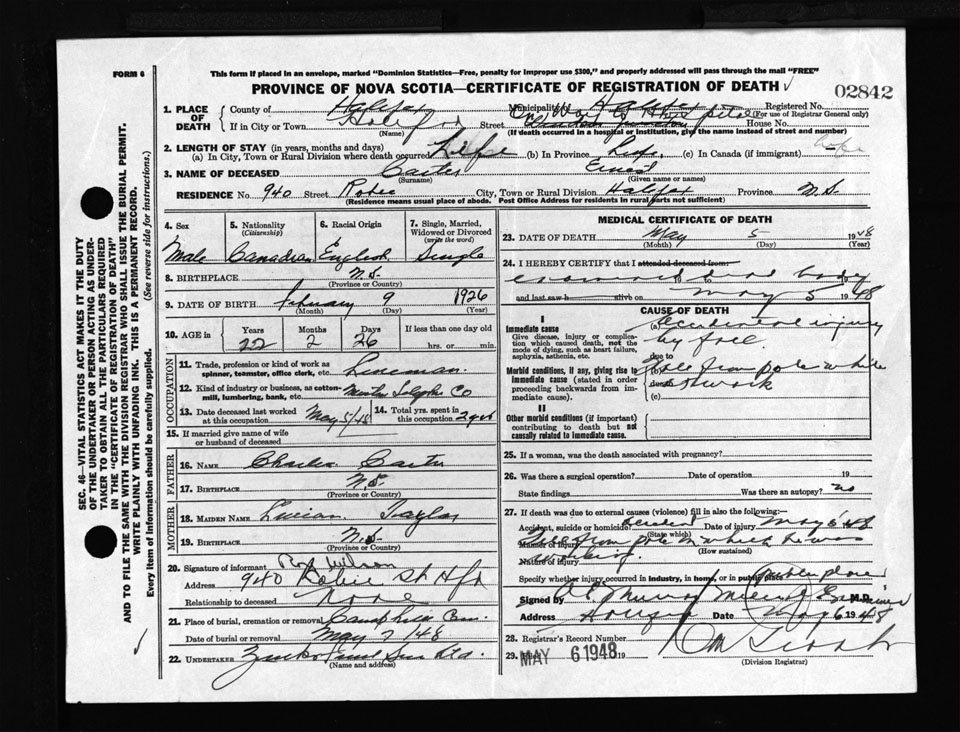 FORM 6
This form if placed in an envelope, marked "Dominion Statistics—Free, penalty for improper use $300," and properly addressed will pass through the mail "FREE"
PROVINCE OF NOVA SCOTIA—CERTIFICATE OF REGISTRATION OF DEATH
02842
1. PLACE OF DEATH
County of Halifax Municipality of Halifax Registered No.
(For use of Registrar General only)
If in City or Town Halifax Street House No.
(Name) (If death occurred in a hospital or institution, give the name instead of street and number)
2. LENGTH OF STAY (in years, months and days)
(a) In City, Town or Rural Division where death occurred Life (b) In Province Life (c) In Canada (if immigrant)
3. NAME OF DECEASED Carter Ernest
(Surname) (Given name or names)
RESIDENCE No. 940 Street Robie City, Town or Rural Division Halifax Province N.S.
(Residence means usual place of abode. Post Office Address for residents in rural parts not sufficient)
4. Sex
Male
5. Nationality
(Citizenship)
Canadian
6. Racial Origin
English
7. Single, Married, Widowed or Divorced
(write the word)
Single
8. BIRTHPLACE N.S.
(Province or Country)
9. DATE OF BIRTH February 9 1926
(Month) (Day) (Year)
10. AGE in
Years Months Days If less than one day old
22 2 26 hrs. or min.
OCCUPATION
11. Trade, profession or kind of work as
spinner, teamster, office clerk, etc. Lineman
12. Kind of industry or business, as cotton-
mill, lumbering, bank, etc. Co
13. Date deceased last worked
at this occupation May 5/48
14. Total yrs. spent in
this occupation 2 yrs
15. If married give name of wife
or husband of deceased
FATHER
16. NAME Charles Carter
17. BIRTHPLACE N.S.
(Province or Country)
MOTHER
18. MAIDEN NAME Taylor
19. BIRTHPLACE N.S.
(Province or Country)
20. Signature of informant Roy Wilson
Address 940 Robie St Hfx
Relationship to deceased None
21. Place of burial, cremation or removal Camp Hill Cem.
Date of burial or removal May 7/48
22. UNDERTAKER
(Name and address)
MEDICAL CERTIFICATE OF DEATH
23. DATE OF DEATH May 5 1948
(Month) (Day) (Year)
24. I HEREBY CERTIFY that I attended deceased from:
examined dead body
and last saw h alive on May 5 1948
CAUSE OF DEATH
I
Immediate cause
Give disease, injury or complica-
tion which caused death, not the
mode of dying, such as heart failure,
asphyxia, asthenia, etc.
(a) Accidental injury
by fall
due to
Morbid conditions, if any, giving rise to
immediate cause (stated in order
proceeding backwards from im-
mediate cause).
fall from pole while
at work
(c)
II
Other morbid conditions (if important)
contributing to death but not
causally related to immediate cause.
25. If a woman, was the death associated with pregnancy?
26. Was there a surgical operation? Date of operation 19
State findings Was there an autopsy? no
27. If death was due to external causes (violence) fill in also the following:
Accident, suicide or homicide? accident Date of injury May 5 48
(State which)
Manner of injury fell from pole on which he was
(How sustained)
Nature of injury working
Specify whether injury occurred in industry, in home, or in public place public place
Signed by M.D.
Address Date May 6 1948
28. Registrar's Record Number
29. MAY 6 1948 19
(Division Registrar)
SEC. 46—VITAL STATISTICS ACT MAKES IT THE DUTY
OF THE UNDERTAKER OR PERSON ACTING AS UNDER-
TAKER TO OBTAIN ALL THE PARTICULARS REQUIRED
IN THE "CERTIFICATE OF REGISTRATION OF DEATH"
AND TO FILE THE SAME WITH THE DIVISION REGISTRAR WHO SHALL ISSUE THE BURIAL PERMIT.
WRITE PLAINLY WITH UNFADING INK. THIS IS A PERMANENT RECORD.
Every item of information should be carefully supplied. (See reverse side for instructions.)